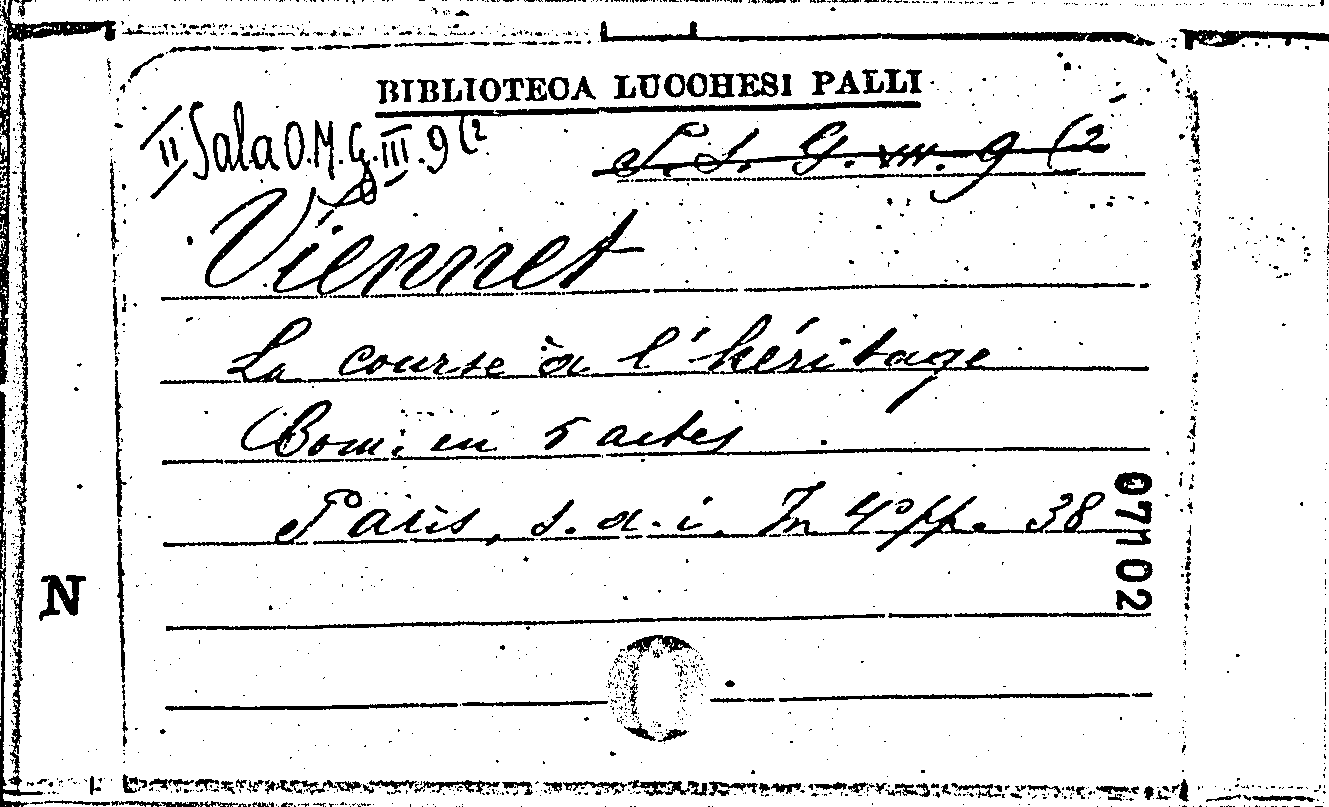 BIBLIOTECA LUCCHESI PALLI
II Sala O.M.G.III.9(2
S. S. G. VII. 9 (2
Viennet
La course à l'héritage
Com. en 5 actes
Paris, s. d. i. In 4° pp. 38
07102
N